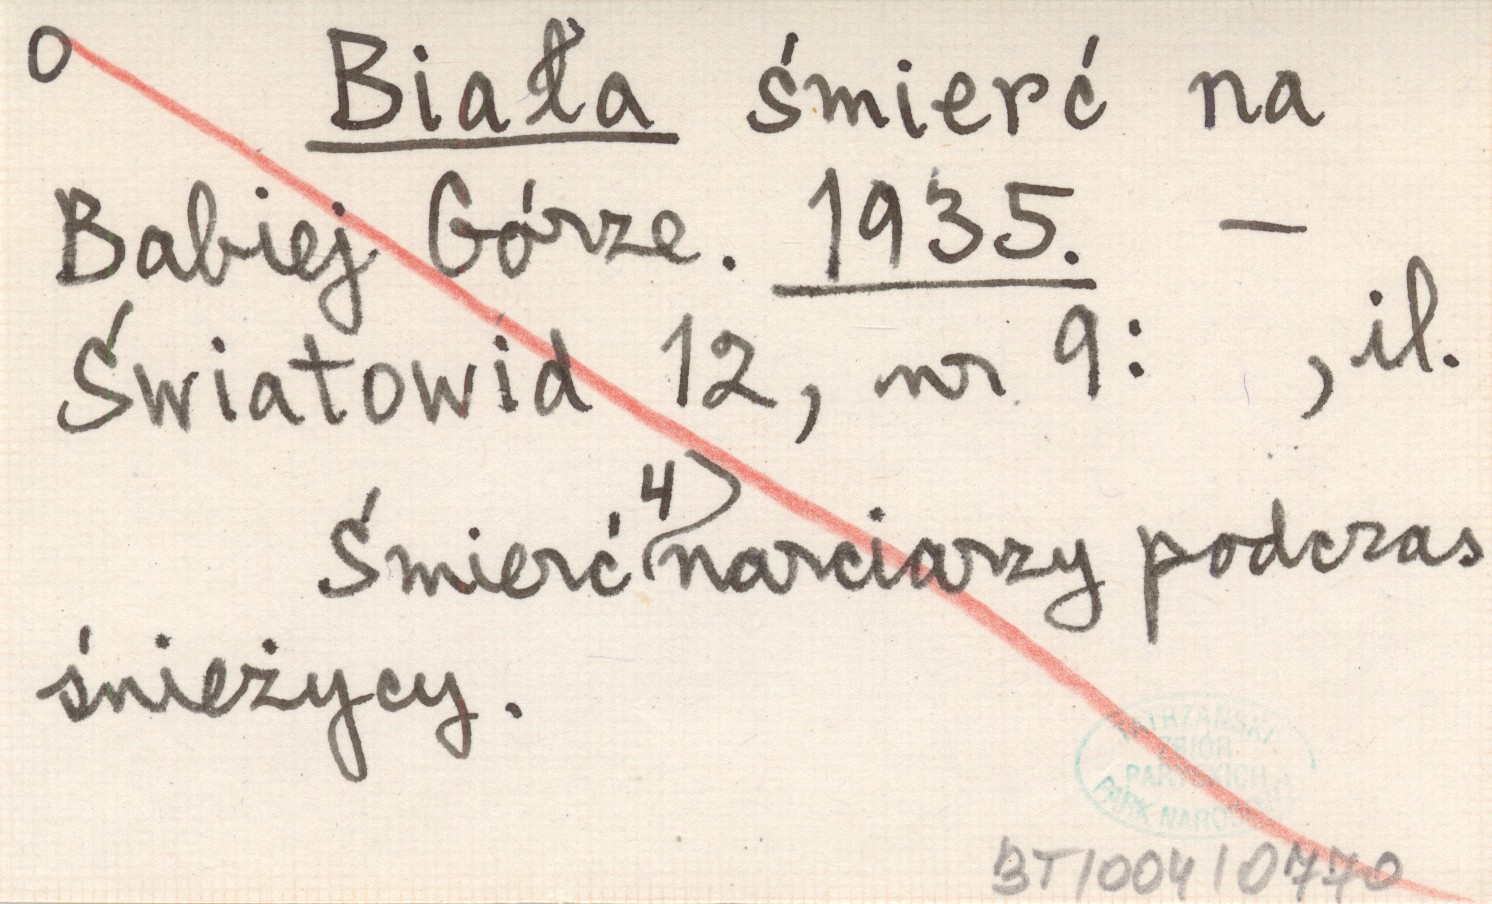 O Biała śmierć na
Babiej Górze. 1935. –
Światowid 12, nr 9: , il.
Śmierć 4 narciarzy podczas
śnieżycy.
TATRZAŃSKI
ZBIÓR
PARK NAROD
BT/004/0770